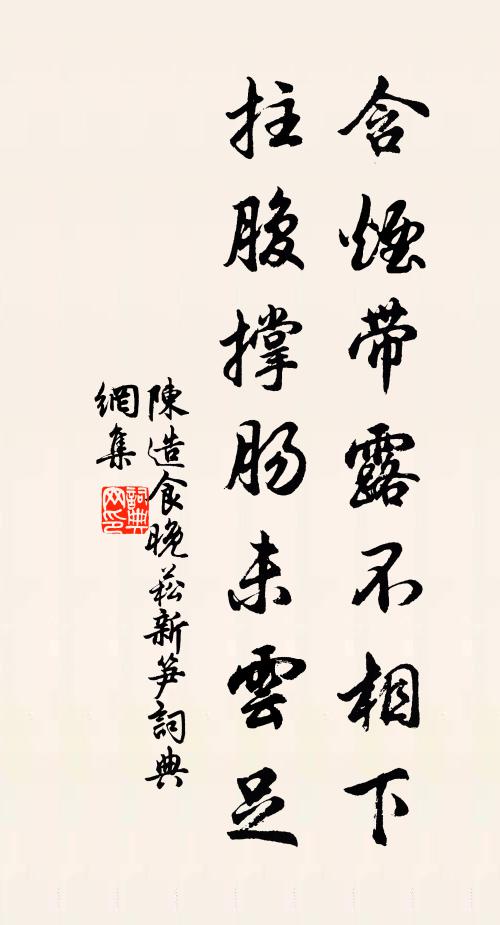 含煙帶露不相下
拄腹撐腸未雲足
陳造食晚菘新笋詞典
網集
詞典网印